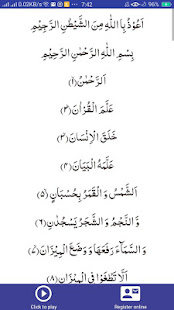 0.02KB/s 7:42 96%
اَعُوْذُ بِاللّٰهِ مِنَ الشَّيْطٰنِ الرَّجِيْمِ
بِسْمِ اللّٰهِ الرَّحْمٰنِ الرَّحِيْمِ
اَلرَّحْمٰنُ(۱)
عَلَّمَ الْقُرْاٰنَ(۲)
خَلَقَ الْاِنْسَانَ(۳)
عَلَّمَهُ الْبَيَانَ(۴)
اَلشَّمْسُ وَ الْقَمَرُ بِحُسْبَانٍ(۵)
وَّ النَّجْمُ وَ الشَّجَرُ يَسْجُدٰنِ(۶)
وَ السَّمَآءَ رَفَعَهَا وَ وَضَعَ الْمِيْزَانَ(۷)
اَلَّا تَطْغَوْا فِی الْمِيْزَانِ(۸)
Click to play Register online